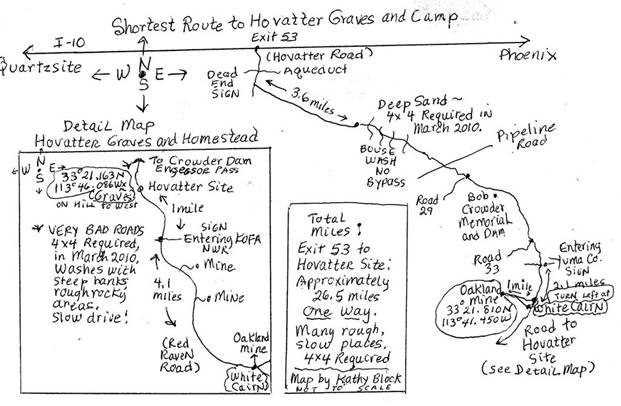 Shortest Route to Hovatter Graves and Camp
I-10
Exit 53
Quartzsite
Phoenix
(Hovatter Road)
Aqueduct
Dead
End
SIGN
N
W E
S
3.6 miles
Deep Sand ~
4x4 Required IN
March 2010.
BOUSE
WASH
NO
BYPASS
Pipeline
Road
Road
29
Bob
Crowder
Memorial
and Dam
Road
33
Entering
Yuma Co.
SIGN
2.1 miles
TURN Left at
White Cairn
1mile
Oakland
Mine
33°21.810N
113°41.450W
Road to
Hovatter
Site
(see Detail Map)
Detail Map
Hovatter Graves and Homestead
N
W E
S
33°21.163N
113°46.086W
Graves
ON Hill to West
To Crowder Dam
ENGESSOR PASS
Hovatter Site
1mile
SIGN
Entering KOFA
NWR
Mine
MiNe
4.1
miles
(Red
Raven
Road)
Oakland
mine
White
Cairn
* VERY BAD ROADS
4x4 Required,
in March 2010.
Washes with
steep banks
rough rocky
areas.
Slow drive!
Total
Miles:
Exit 53 to
Hovatter Site:
Approximately
26.5 miles
One Way.
Many rough,
slow places.
4x4 Required
Map by Kathy Block
NOT TO SCALE